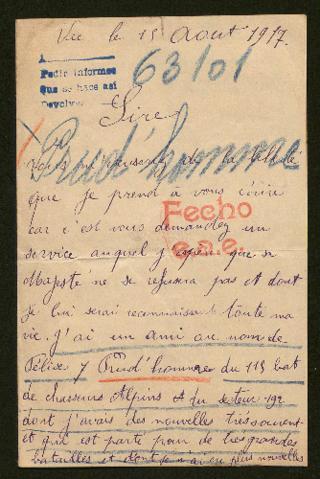 Vic le 15 Aout 1917.
Pedir informes
que se hace así
Devolver
63101
Sire,
Prud'homme
Vous m' de la
que je prend à vous écrire
Fecho
car c'est vous demandez un
e.a.e.
service auquel j'espère que sa
Majesté ne se refusera pas et dont
je lui serai reconnaissante toute ma
vie. J'ai un ami au nom de
Prud'homme du 115 bat
de chasseurs Alpins et du secteur 192
dont j'avais des nouvelles très souvent
et qui est parti pour de très grandes
batailles et dont je n'ai eu plus nouvelles